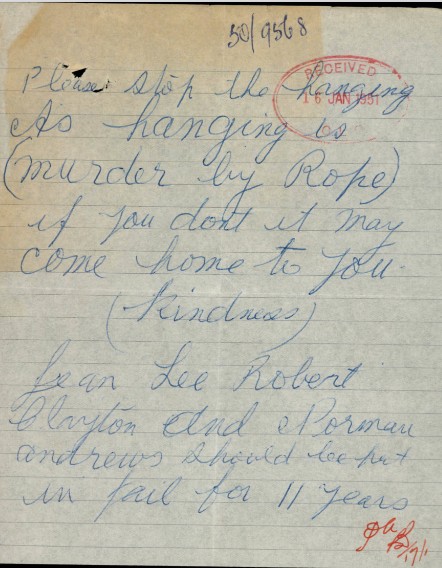 50/9568
Please stop the hanging
RECEIVED
16 JAN 1951
As hanging is
(murder by Rope)
if you dont it may
come home to you.
(kindness)
Jean Lee Robert
Clayton and Norman
andrews should be put
in jail for 11 years